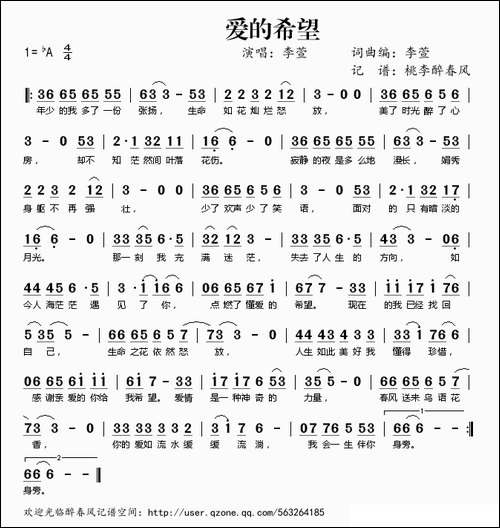 爱的希望
1=♭A 4/4 演唱：李萱 词曲编：李萱
记 谱：桃李醉春风
36 65 65 55 | 63 3 - 53 | 2 2 3 2 12 | 3 - 0 0 | 36 65 65 56 |
年少的我多了一份 张扬， 生命 如花灿烂怒 放， 美了时光醉了心
3 - 0 53 | 2·1 32 11 | 16· - 0 | 36 65 65 55 | 63 3 - 53 |
房， 却不 知茫然间叶落 花伤。 寂静的夜是多么地 漫长， 娟秀
2 2 3 2 12 | 3 - 0 0 | 36 65 65 56 | 3 - 0 53 | 2·1 32 17 |
身躯不再强 壮， 少了欢声少了笑 语， 面对 的只有暗淡的
16 6 - 0 | 33 35 6·5 | 32 12 3 - | 33 35 65 76 | 3 - 0 06 |
月光。 那一刻我充 满迷茫， 失去了人生的 方向， 如
44 45 6·5 | 3· 1 16 6 | 06 65 65 17 | 76 6 - 33 | 33 17 1 76 |
今人海茫茫遇 见了你， 点燃了懂爱的 希望。 现在 的我已经找回
5 35 5 - | 66 65 67 57 | 73 3 - 0 | 44 43 4 33 | 33 1 76 6 |
自己， 生命之花依然怒 放， 人生如此美好我 懂得珍惜，
06 65 61 11 | 61 7 - 33 | 11 17 6 53 | 35 5 - - | 66 65 65 7 |
感谢亲爱的你给 我希望。 爱情 是一种神奇的 力量， 春风送来鸟语花
73 3 - 0 | 66 65 6 77 | 67 3 - - | 07 56 53 56 | 66 6 - - :|
香， 你的爱如流水缓 缓流淌， 我会一生伴你 身旁。
66 6 - - :|
身旁。
欢迎光临醉春风记谱空间：http://user.qzone.qq.com/563264185